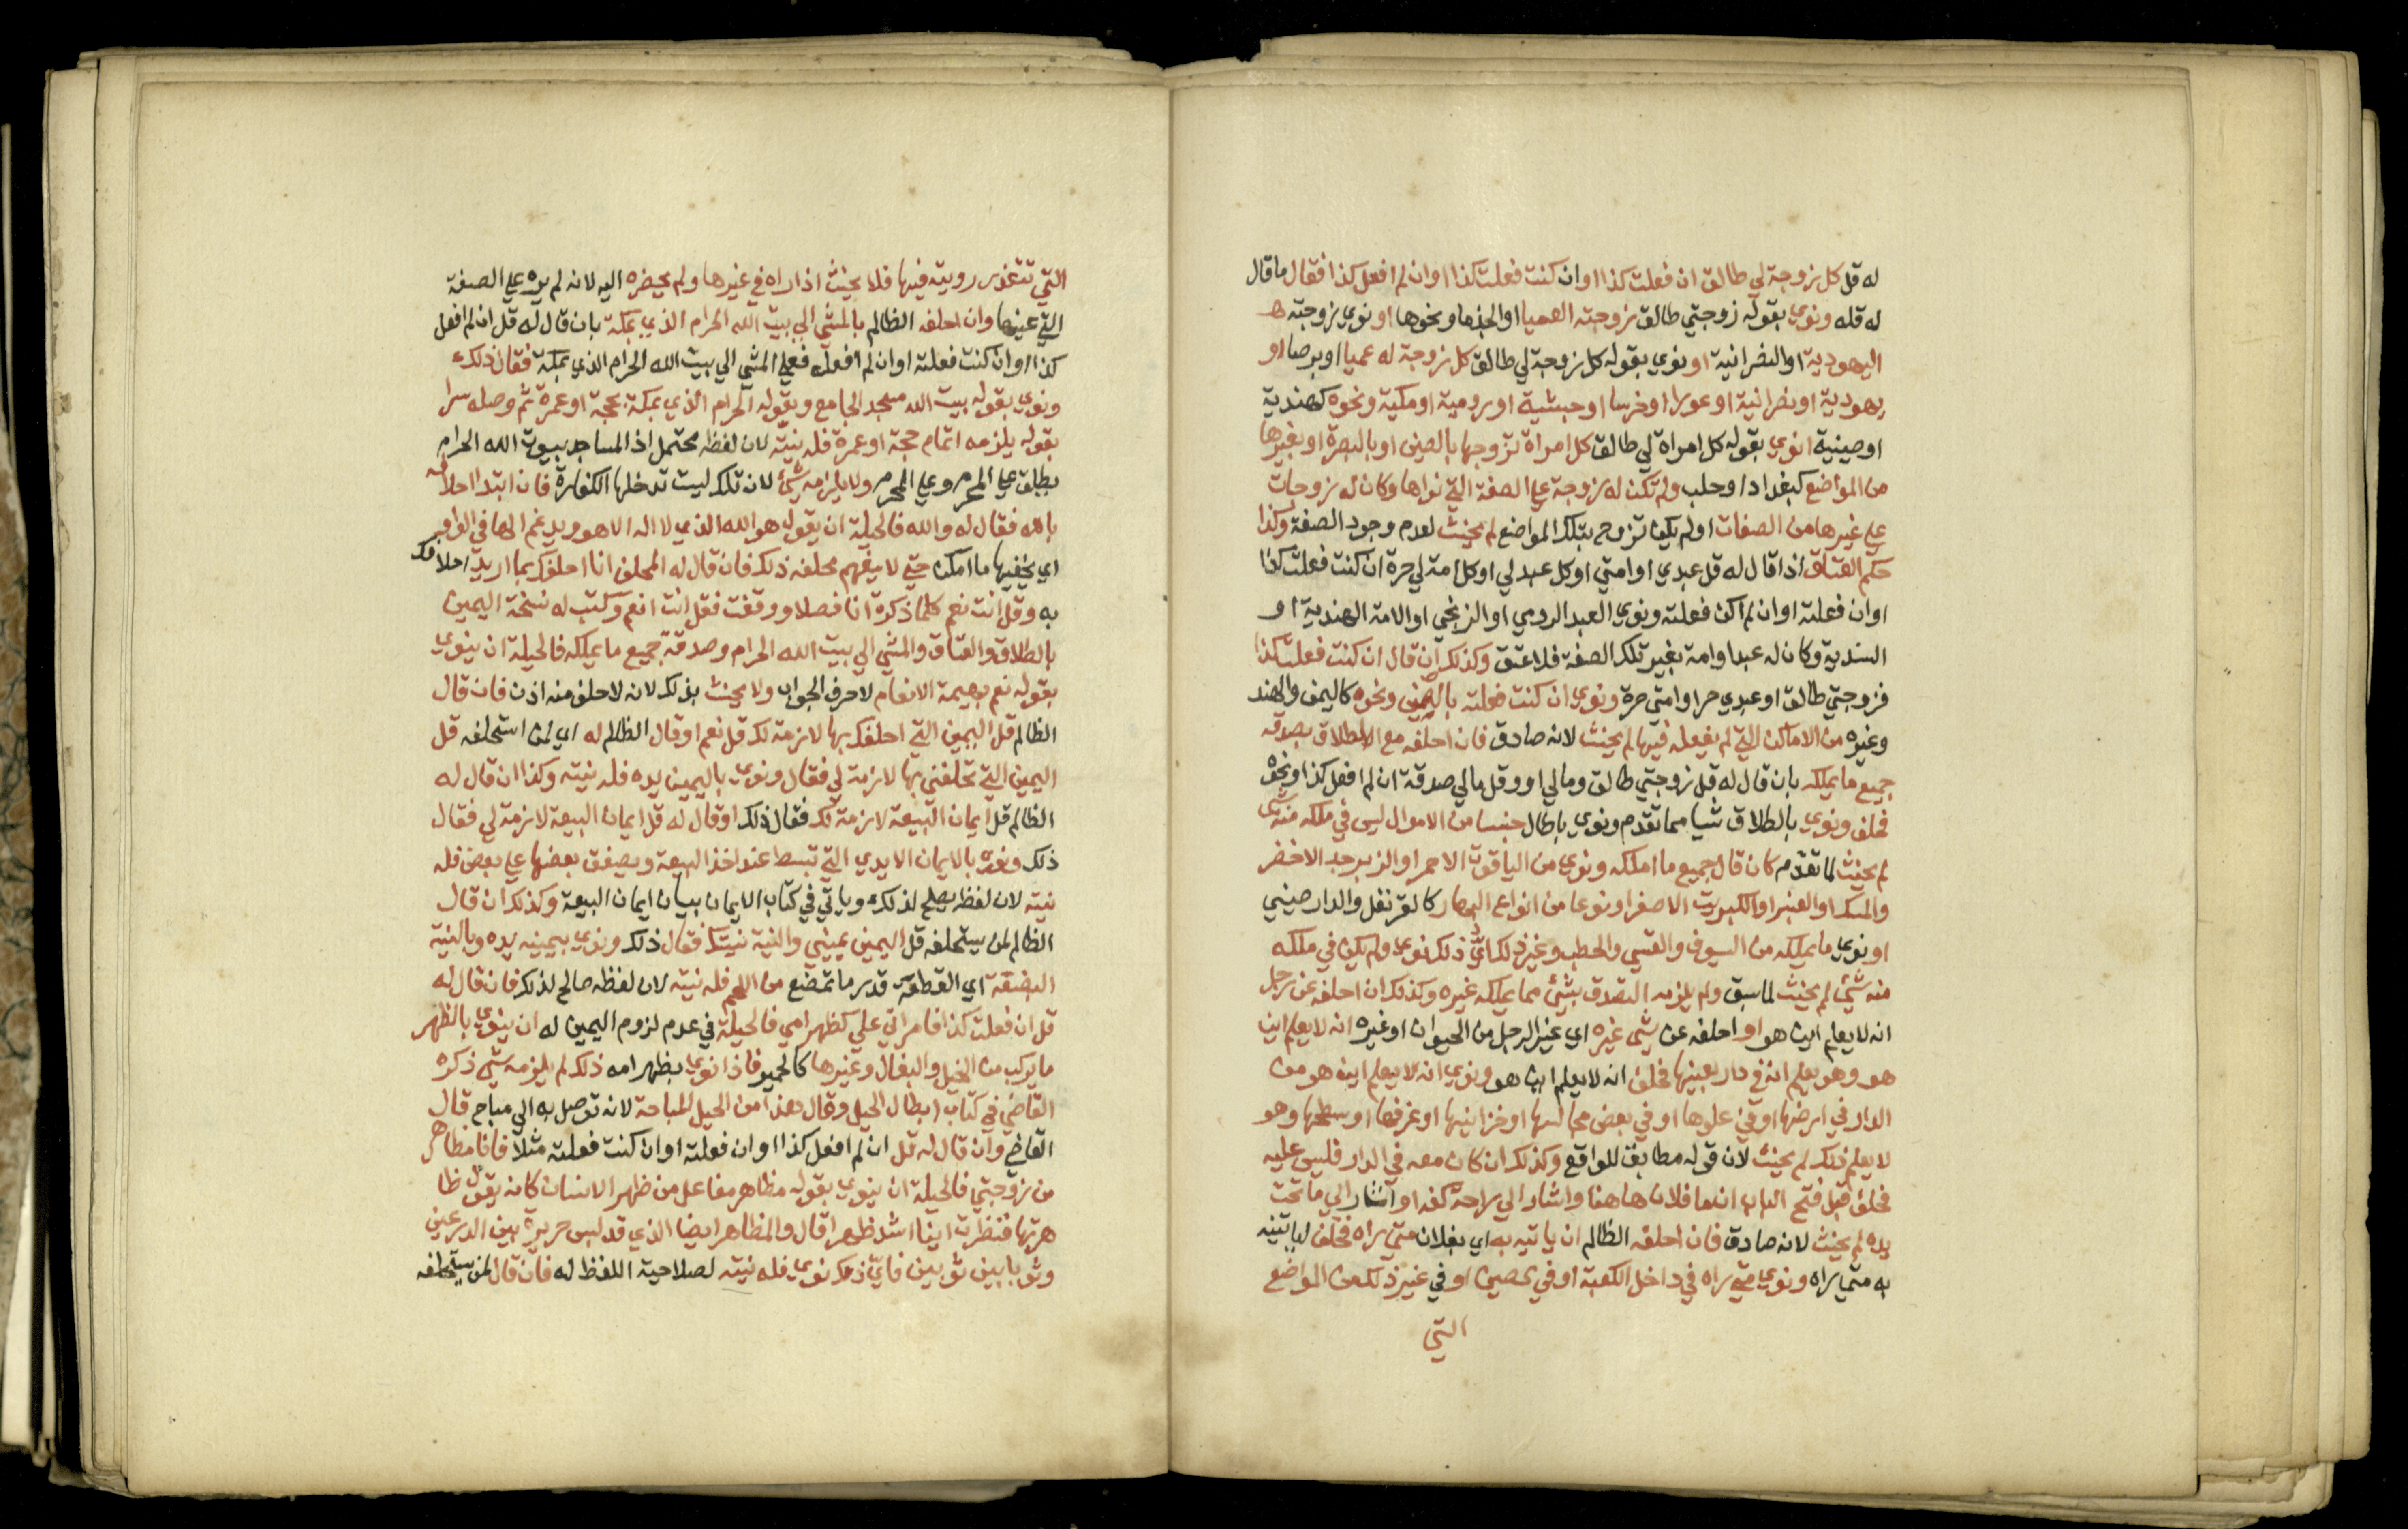 له قل كل زوجة لي طالق ان فعلت كذا او ان كنت فعلت كذا او ان لم افعل كذا فقال ما قال
له قله ونوي بقوله زوجتي طالق زوجته العميا او الجذما ونحوها او نوي زوجته
اليهودية او النصرانية او نوي بقوله كل زوجة لي طالق كل زوجة له عميا او برصا او
يهودية او نصرانية او عورا او خرسا او حبشية او رومية او مكية ونحوه كهندية
او صينية او نوي بقوله كل امراة لي طالق كل امراة تزوجها بالصين او بالبصرة او بغيرها
من المواضع كبغداد وحلب ولم تكن له زوجة علي الصفة التي نواها وكان له زوجات
علي غيرها من الصفات او لم يكن تزوج بتلك المواضع لم يحنث لعدم وجود الصفة وكذا
حكم العتاق اذا قال له قل عبدي او امتي او كل عبد لي او كل امة لي حرة ان كنت فعلت كذا
او ان فعلته او ان لم اكن فعلته ونوي العبد الرومي او الزنجي او الامة الهندية او
السندية وكان له عبدا وامة بغير تلك الصفة فلا عتق وكذلك ان قال ان كنت فعلت كذا
فزوجتي طالق او عبدي حر او امتي حرة ونوي ان كنت فعلته بالصين ونحوه كاليمن والهند
وغيره من الاماكن التي لم يفعله فيها لم يحنث لانه صادق فان احلفه مع الطلاق بصدقة
جميع ما يملكه بان قال له قل زوجتي طالق ومالي او وقل مالي صدقة ان لم افعل كذا ونحوه
فحلف ونوي بالطلاق شيا مما تقدم ونوي بالمال جنسا من الاموال ليس في ملكه منه شي
لم يحنث لما تقدم كان قال جميع ما املكه ونوي من الياقوت الاحمر او الزبرجد الاخضر
والمسك او العنبر او الكبريت الاصفر او نوعا من انواع البهار كالقرنفل والدار صيني
او نوي ما يملكه من السيوف والقسي والحطب وغير ذلك اي ذلك نوي ولم يكن في ملكه
منه شئ لم يحنث لما سبق ولم يلزمه التصدق بشئ مما يملكه غيره وكذلك ان احلفه عن رجل
انه لا يعلم اين هو او احلفه عن شي غيره اي غير الرجل من الحيوان او غيره انه لا يعلم اين
هو وهو يعلم انه في دار بعينها فحلف انه لا يعلم اين هو ونوي انه لا يعلم اين هو من
الدار في ارضها او في علوها او في بعض مجالسها او خزاينها او غرفها او سطحها وهو
لا يعلم ذلك لم يحنث لان قوله مطابق للواقع وكذلك ان كان معه في الدار فليس عليه
فحلف قبل فتح الباب ان ما فلان هاهنا واشار الي راحة كفه او اشار الي ما تحت
يده لم يحنث لانه صادق فان احلفه الظالم ان ياتيه به اي بفلان متي راه فحلف لياتينه
به متي راه ونوي متي راه في داخل الكعبة او في الصين او في غير ذلك من المواضع
التي
التي تتعذر رويته فيها فلا يحنث اذا راه في غيرها ولم يحضره اليه لانه لم يره علي الصفة
التي عينها وان احلفه الظالم بالمشي الي بيت الله الحرام الذي بمكة بان قال له قل ان لم افعل
كذا او ان كنت فعلته او ان لم افعله فعلي المشي الي بيت الله الحرام الذي بمكة فقال ذلك
ونوي بقوله بيت الله مسجد الجامع وبقوله الحرام الذي بمكة بحجة او عمرة ثم وصله سرا
بقوله يلزمه اتمام حجة او عمرة فله نيته لان لفظه محتمل اذ المساجد بيوت الله الحرام
يطلق علي المحرم وعلي المحرم ولا يلزمه شئ لان تلك ليست تدخلها الكفارة فان ابتدا احلافه
بالله فقال له والله فالحيلة ان يقول هو الله الذي لا اله الا هو ويدغم الها في الواو
اي يخفيها ما امكن حتي لا يفهم محلفه ذلك فان قال له المحلف انا احلفك بما اريد احلافك
به وقل انت نعم كلما ذكرت انا فصلا ووقفت فقل انت نعم وكتب له نسخة اليمين
بالطلاق والعتاق والمشي الي بيت الله الحرام وصدقة جميع ما يملكه فالحيلة ان ينوي
بقوله نعم بهيمة الانعام لا حرف الجواب ولا يحنث بذلك لانه لا حلف منه اذن فان قال
الظالم قل اليمين التي احلفك بها لازمة لك قل نعم او قال الظالم له اي لمن استحلفه قل
اليمين التي تحلفني بها لازمة لي فقال ونوي باليمين يده فله نيته وكذا ان قال له
الظالم قل ايمان البيعة لازمة لك فقال ذلك او قال له قل ايمان البيعة لازمة لي فقال
ذلك ونوي بالايمان الايدي التي تبسط عند اخذ البيعة ويصفق بعضها علي بعض فله
نيته لان لفظه يصلح لذلك وياتي في كتاب الايمان بيان ايمان البيعة وكذلك ان قال
الظالم لمن يستحلفه قل اليمين يميني والنية نيتك فقال ذلك ونوي بيمينه يده وبالنية
البضعة اي القطعة قدر ما تمضغ من اللحم فله نيته لان لفظه صالح لذلك فان قال له
قل ان فعلت كذا فامراتي علي كظهر امي فالحيلة في عدم لزوم اليمين له ان ينوي بالظهر
ما يركب من الخيل والبغال وغيرها كالحمير فاذا نوي بظهر امه ذلك لم يلزمه شي ذكره
القاضي في كتاب ابطال الحيل وقال هذا من الحيل المباحة لانه توصل به الي مباح قال
القاضي وان قال له قل ان لم افعل كذا او ان فعلته او ان كنت فعلته مثلا فانا مظاهر
من زوجتي فالحيلة ان ينوي بقوله مظاهر مفاعل من ظهر الانسان كانه يقول ظا
هرتها فنظرت اينا اشد ظهرا قال والمظاهر ايضا الذي قد لبس حريرة بين الدرعين
وثوبا بين ثوبين فاي ذلك نوي فله نيته لصلاحية اللفظ له فان قال لمن يستحلفه